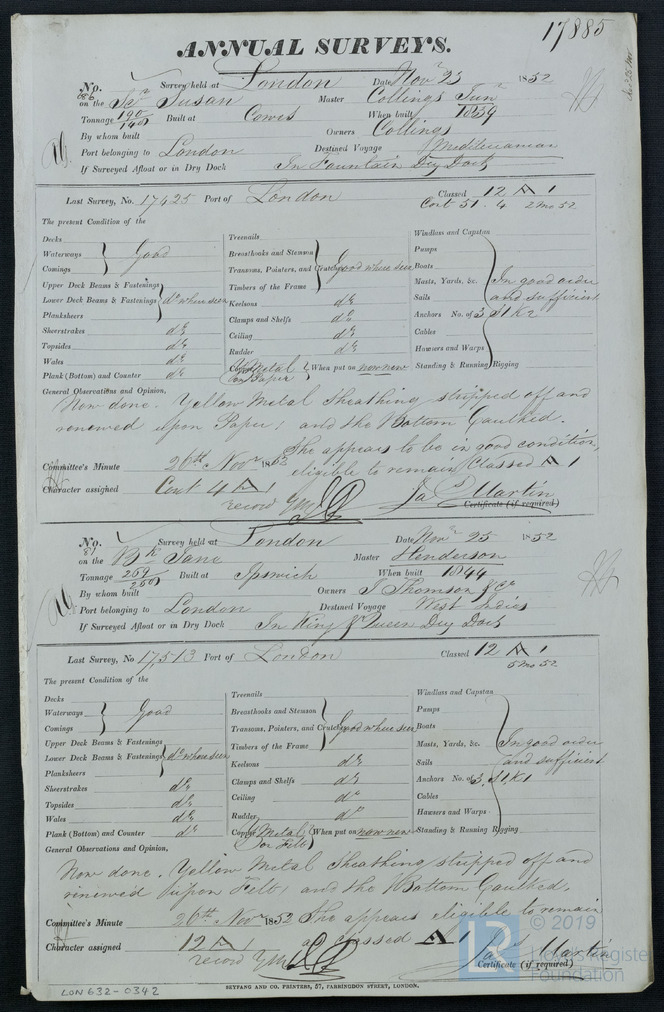 17885
ANNUAL SURVEYS.
No. 686 Survey held at London Date Novr 23 1852
on the Scr Susan Master Collings Junr
Tonnage 190/140 Built at Cowes When built 1839
By whom built Owners Collings
Port belonging to London Destined Voyage Mediterranean
If Surveyed Afloat or in Dry Dock In Fountain Dry Dock
Last Survey, No. 17425 Port of London Classed 12 A 1
Cont 51. 4 2 Mo 52
The present Condition of the
Decks
Waterways Good
Comings
Upper Deck Beams & Fastenings
Lower Deck Beams & Fastenings do where seen
Planksheers
Sheerstrakes do
Topsides do
Wales do
Plank (Bottom) and Counter do
Treenails
Breasthooks and Stemson
Transoms, Pointers, and Crutches Good where seen
Timbers of the Frame
Keelsons do
Clamps and Shelfs do
Ceiling do
Rudder do
Copper Y Metal When put on now new
on Paper
Windlass and Capstan
Pumps
Boats
Masts, Yards, &c. In good order
Sails and sufficient
Anchors No. of 3. S1. K2
Cables
Hawsers and Warps
Standing & Running Rigging
General Observations and Opinion,
Now done. Yellow Metal Sheathing stripped off and
renewed upon Paper; and the Bottom Caulked.
She appears to be in good condition,
Committee's Minute 26th Novr 1852 eligible to remain Classed A 1
Character assigned Cont 4 A 1
record YM Jas Martin
Certificate (if required)
No. 87 Survey held at London Date Novr 25 1852
on the Bk Jane Master Henderson
Tonnage 259/250 Built at Ipswich When built 1844
By whom built Owners J Thomson & Co
Port belonging to London Destined Voyage West Indies
If Surveyed Afloat or in Dry Dock In King & Queen Dry Dock
Last Survey, No 17513 Port of London Classed 12 A 1
5 Mo 52
The present Condition of the
Decks
Waterways Good
Comings
Upper Deck Beams & Fastenings
Lower Deck Beams & Fastenings do where seen
Planksheers
Sheerstrakes do
Topsides do
Wales do
Plank (Bottom) and Counter do
Treenails
Breasthooks and Stemson
Transoms, Pointers, and Crutches Good where seen
Timbers of the Frame
Keelsons do
Clamps and Shelfs do
Ceiling do
Rudder do
Copper Y Metal When put on now new
on Felt
Windlass and Capstan
Pumps
Boats
Masts, Yards, &c. In good order
Sails and sufficient
Anchors No. of 3. S1. K1
Cables
Hawsers and Warps
Standing & Running Rigging
General Observations and Opinion,
Now done. Yellow Metal Sheathing stripped off and
renewed upon Felt; and the Bottom Caulked.
Committee's Minute 26th Novr 1852 She appears eligible to remain
Character assigned 12 A 1 as classed A 1
record YM Jas Martin
Certificate (if required)
SEYFANG AND CO. PRINTERS, 57, FARRINGDON STREET, LONDON.
LON632-0342
© 2019
LR Lloyd's Register
Foundation